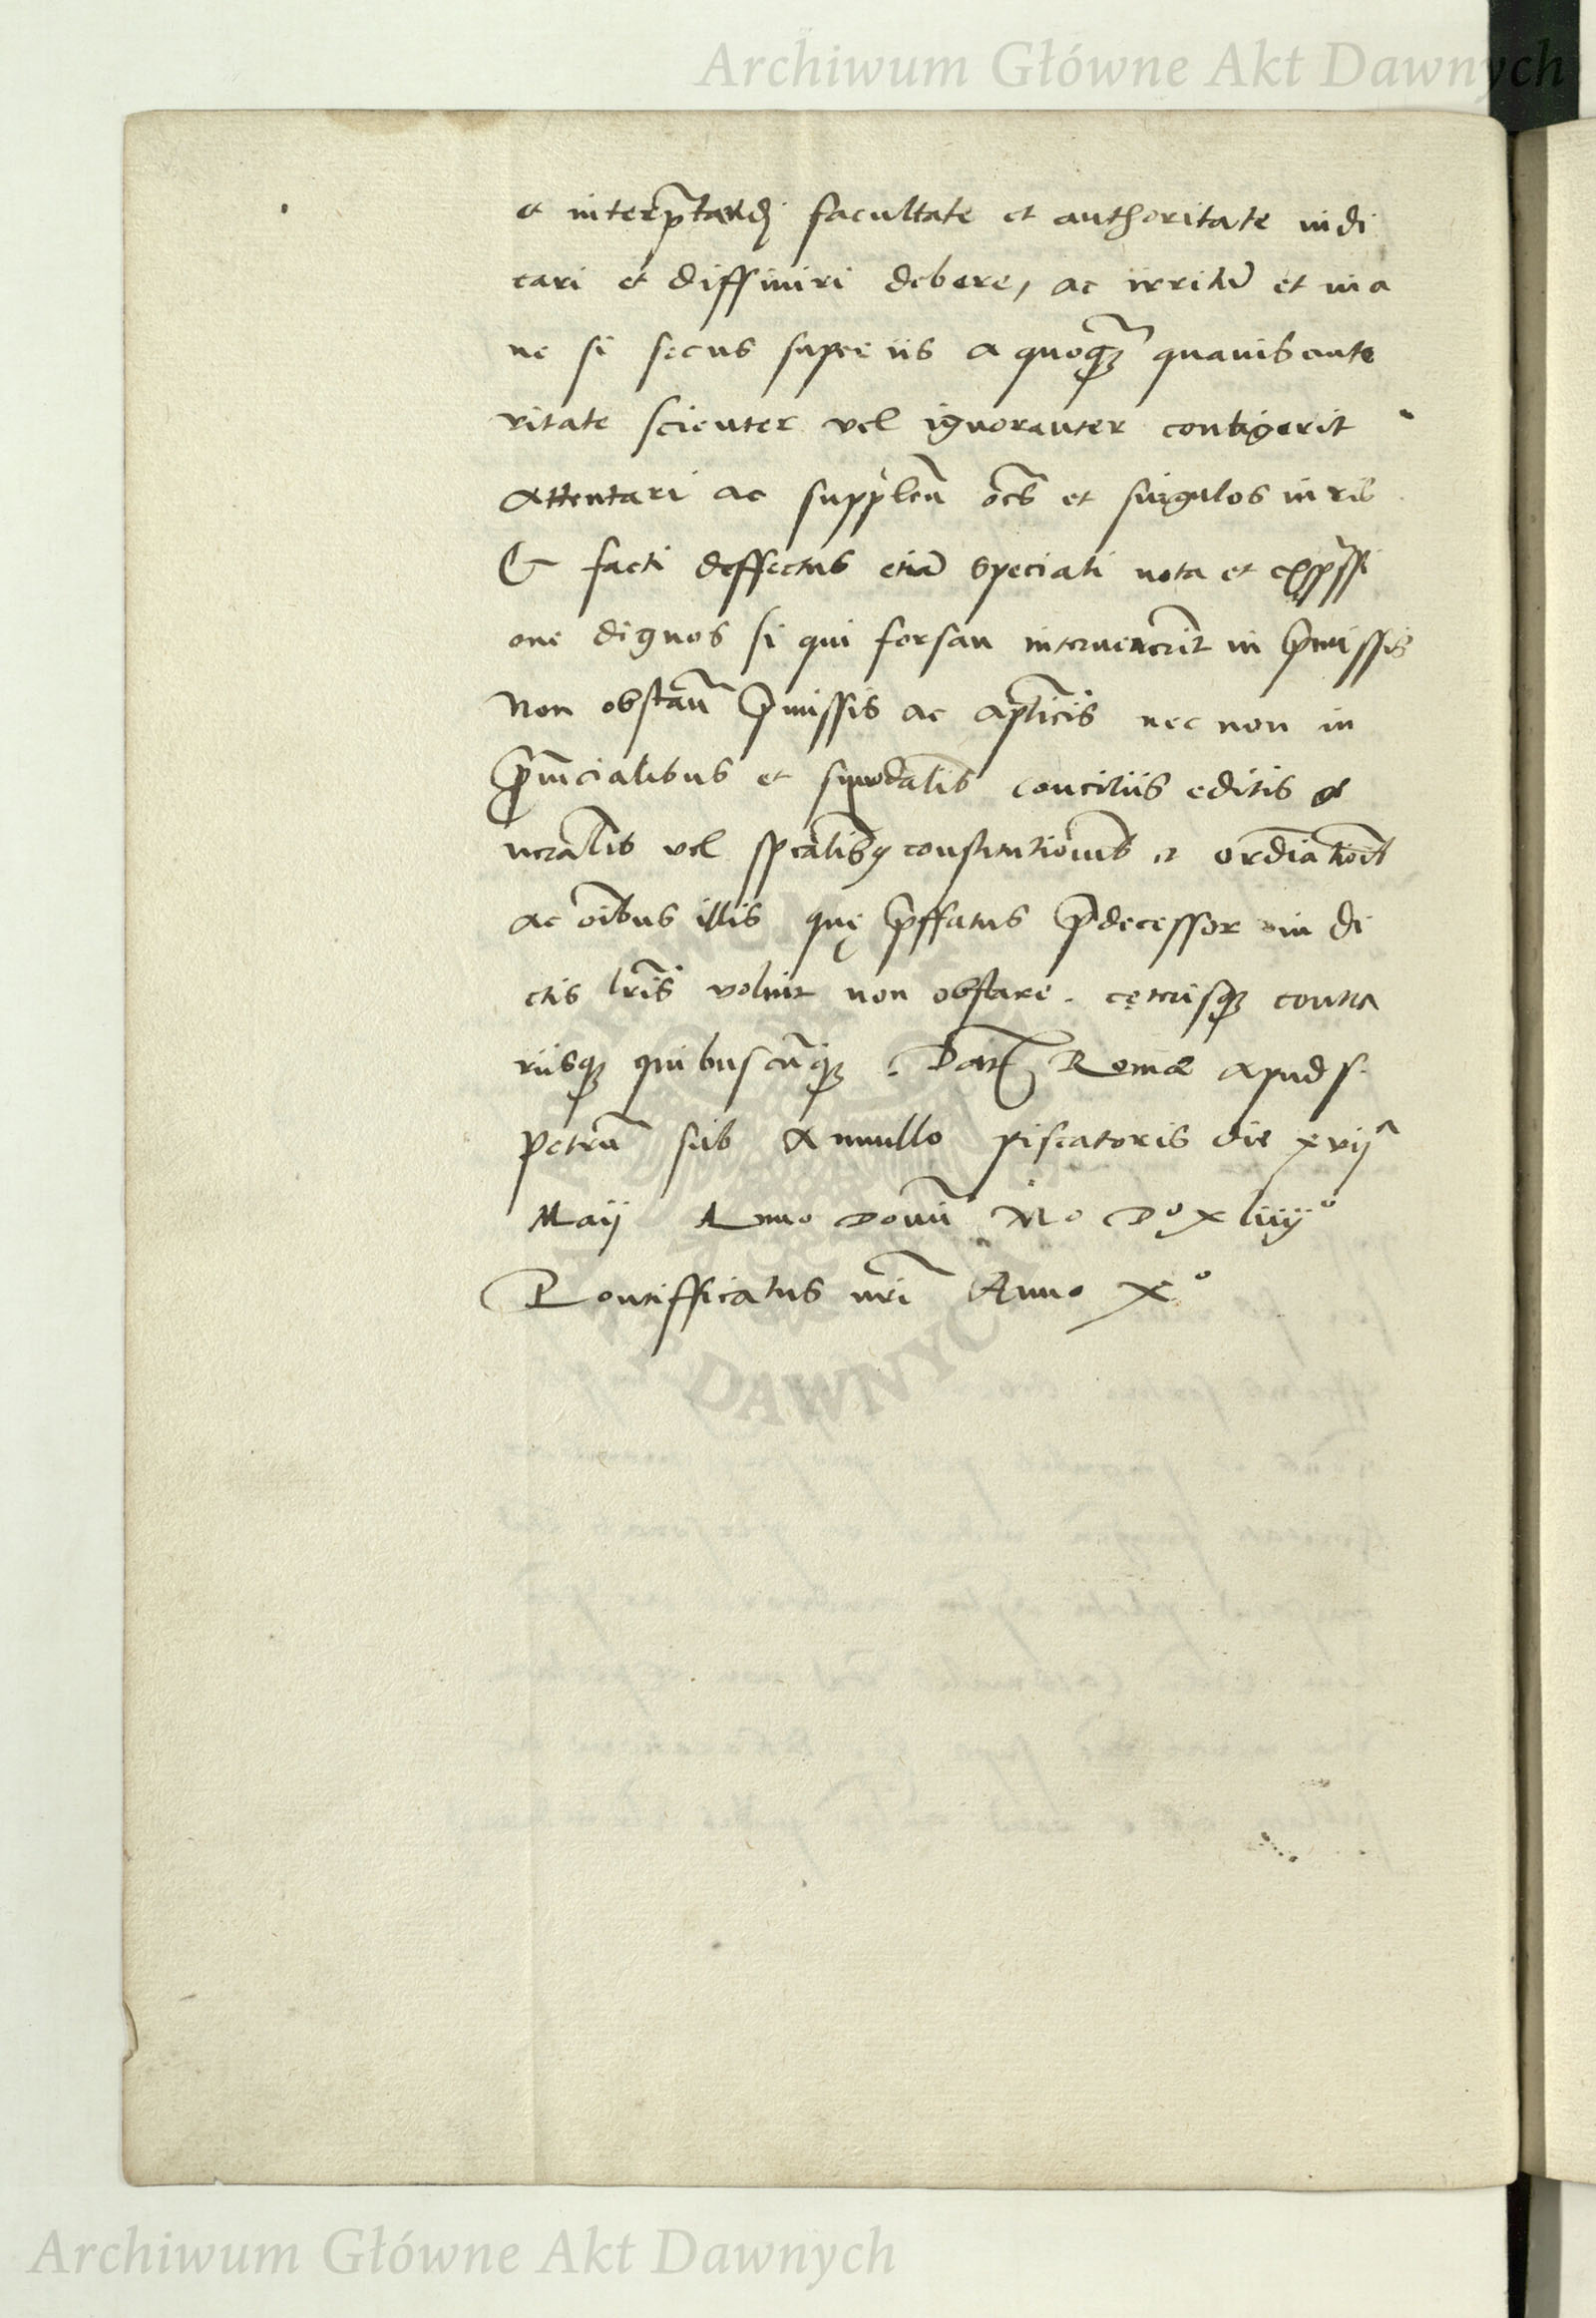 Archiwum Główne Akt Dawnych
et interp̃tandj facultate et authoritate iudi
cari et diffiniri debere, ac irritũ et ina
ne si secus super iis a quoq̃ quauis aucto
ritate scienter vel ignoranter contigerit
Attentari ac suppleñ oẽs et singulos iuris
Et facti deffectus etiã speciali nota et exp̃ssi
one dignos si qui forsan interuenerĩt in p̃missis
Non obstañ p̃missis ac aplĩcis nec non in
prouĩcialibus et synodalib conciliis editis ge
neralĩb vel spealĩbq constitutionĩb et ordĩatioĩb
ac oĩbus illis quę p̃ffatus p̃decessor in di
ctis lr̃is voluit non obstare. cęterisq contra
riisq quibuscũq. Dat Romæ apud s.
Petrũ sub Annullo piscatoris die xvijª
Maij Anno Domĩ Mo Dº xliiijº
Pontifficatus nr̃i Anno Xº
ARCHIWUM GŁÓWNE AKT DAWNYCH
Archiwum Główne Akt Dawnych